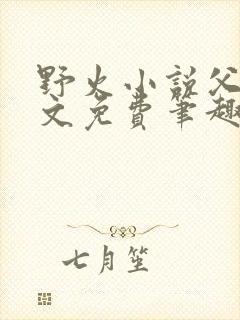 野火小说父
文免费笔趣
七月笙